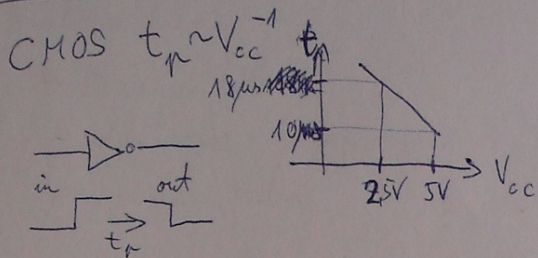 CMOS t_p ~ V_cc^-1
t
18µs
10
V_cc
2,5V 5V
in out
t_p